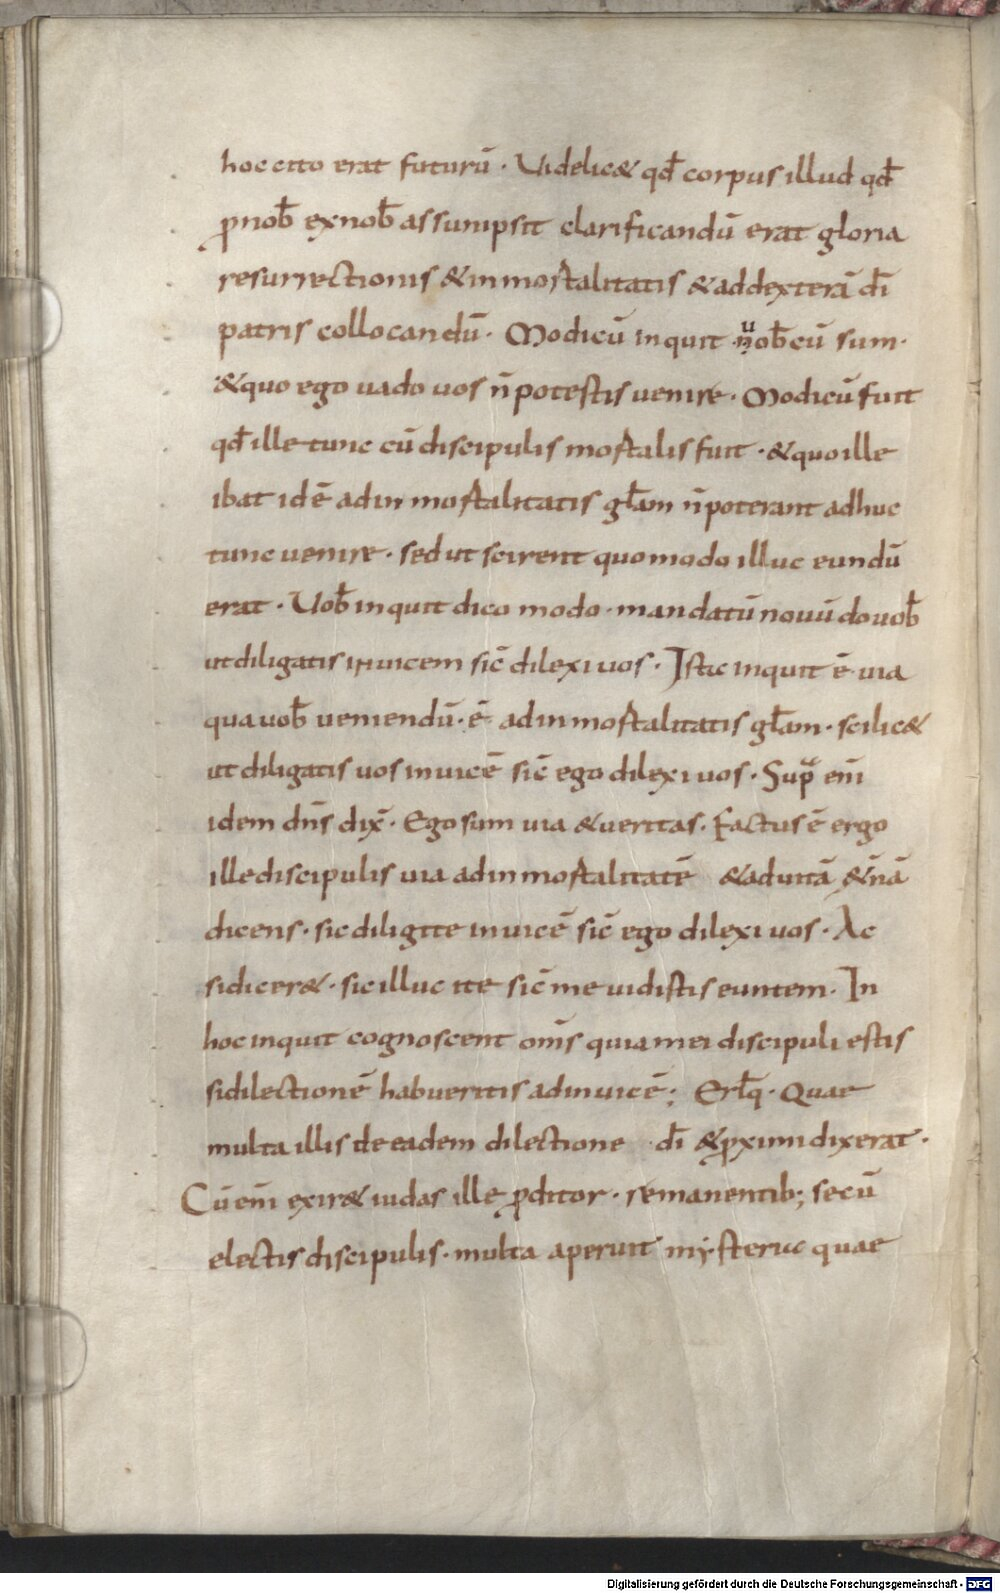 hoc cito erat futurū · Uidelic& qđ corpus illud qđ
ꝓnob̄ exnob̄ assumpsit clarificandū erat gloria
resurrectionis &inmortalitatis &addexterā dī
patris collocandū · Modicū inquit uob̄cū sum ·
&quo ego uado uos n̄potestis uenire · Modicū fuit
qđ ille tunc cū discipulis mortalis fuit · &quoille
ibat idē adinmortalitatis gł̄am n̄poterant adhuc
tunc uenire · sed ut scirent quomodo illuc eundū
erat · Uob̄ inquit dico modo · mandatū nouū do uob̄
ut diligatis inuicem sic̄ dilexi uos · Istac inquit ē uia
qua uob̄ ueniendū · ē adinmortalitatis gł̄am · scilic&
ut diligatis uos inuicē sic̄ ego dilexi uos · Supͣ enī
idem dn̄s dix̄ · Ego sum uia &ueritas · Factus ē ergo
ille discipulis uia adinmortalitatē &aduitā &n̄ā
dicens · sic diligite inuicē sic̄ ego dilexi uos · Ac
sidicer& · sic illuc ite sic̄ me uidistis euntem · In
hoc inquit cognoscent om̄s quia mei discipuli estis
sidilectionē habueritis adinuicē ; Erłq · Quae
multa illis de eadem dilectione dī &ꝓximi dixerat ·
Cū enī exir& iudas ille ꝓditor · remanentib; secū
electis discipulis · multa aperuit mẏsteria quae
Digitalisierung gefördert durch die Deutsche Forschungsgemeinschaft - DFG